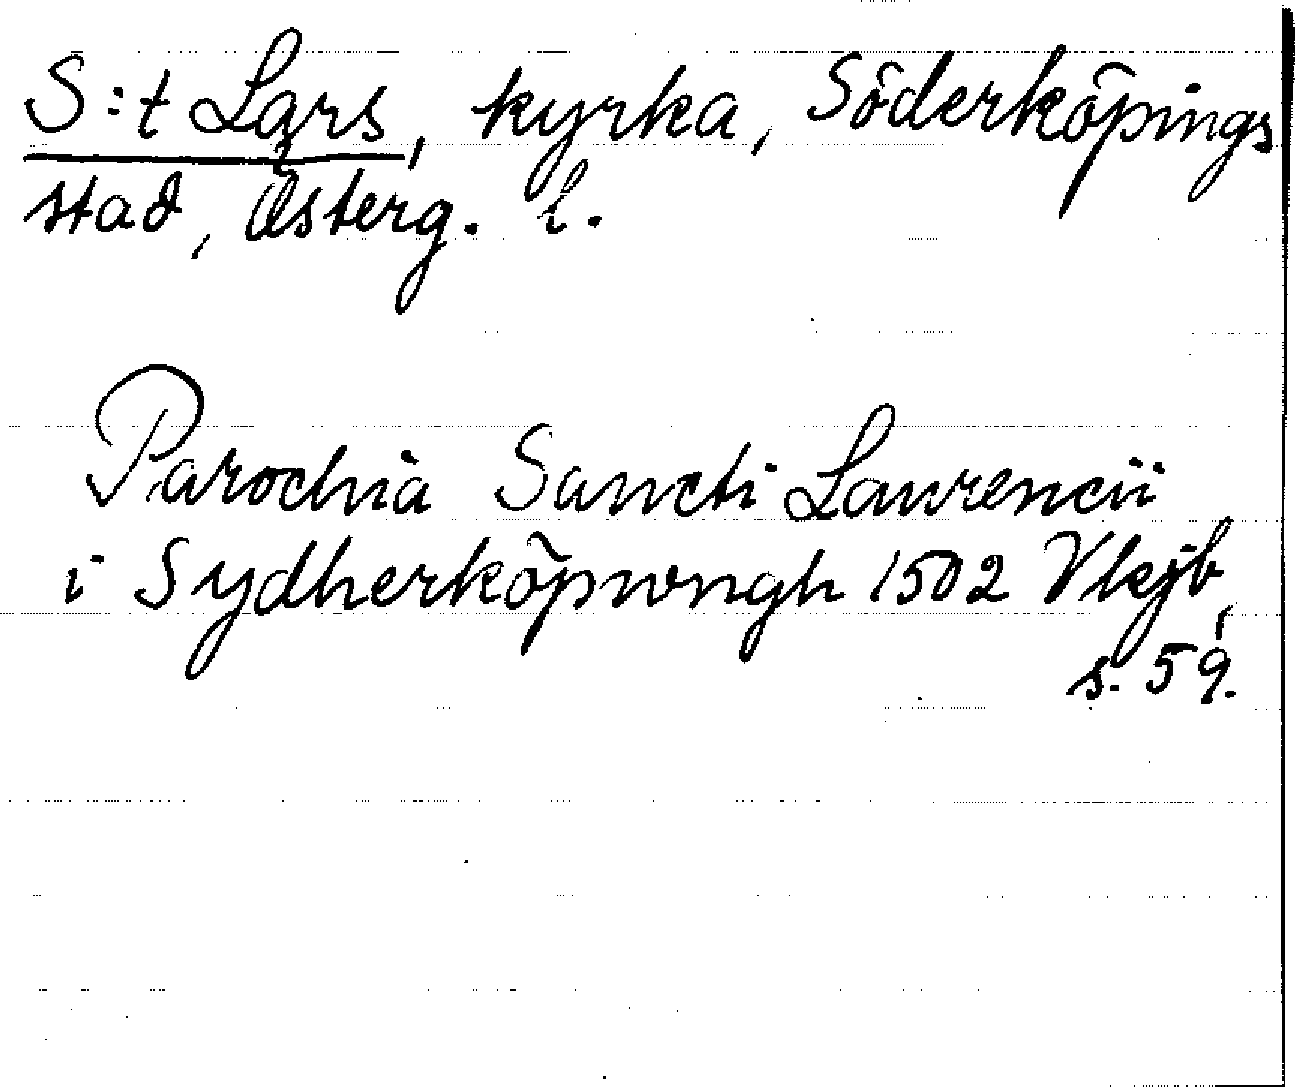 S:t Lars, kyrka, Söderköpings
stad, Österg. l.
Parochia Sancti Laurencii
i Sydherköpwngh 1502 Vkjb,
s. 59.